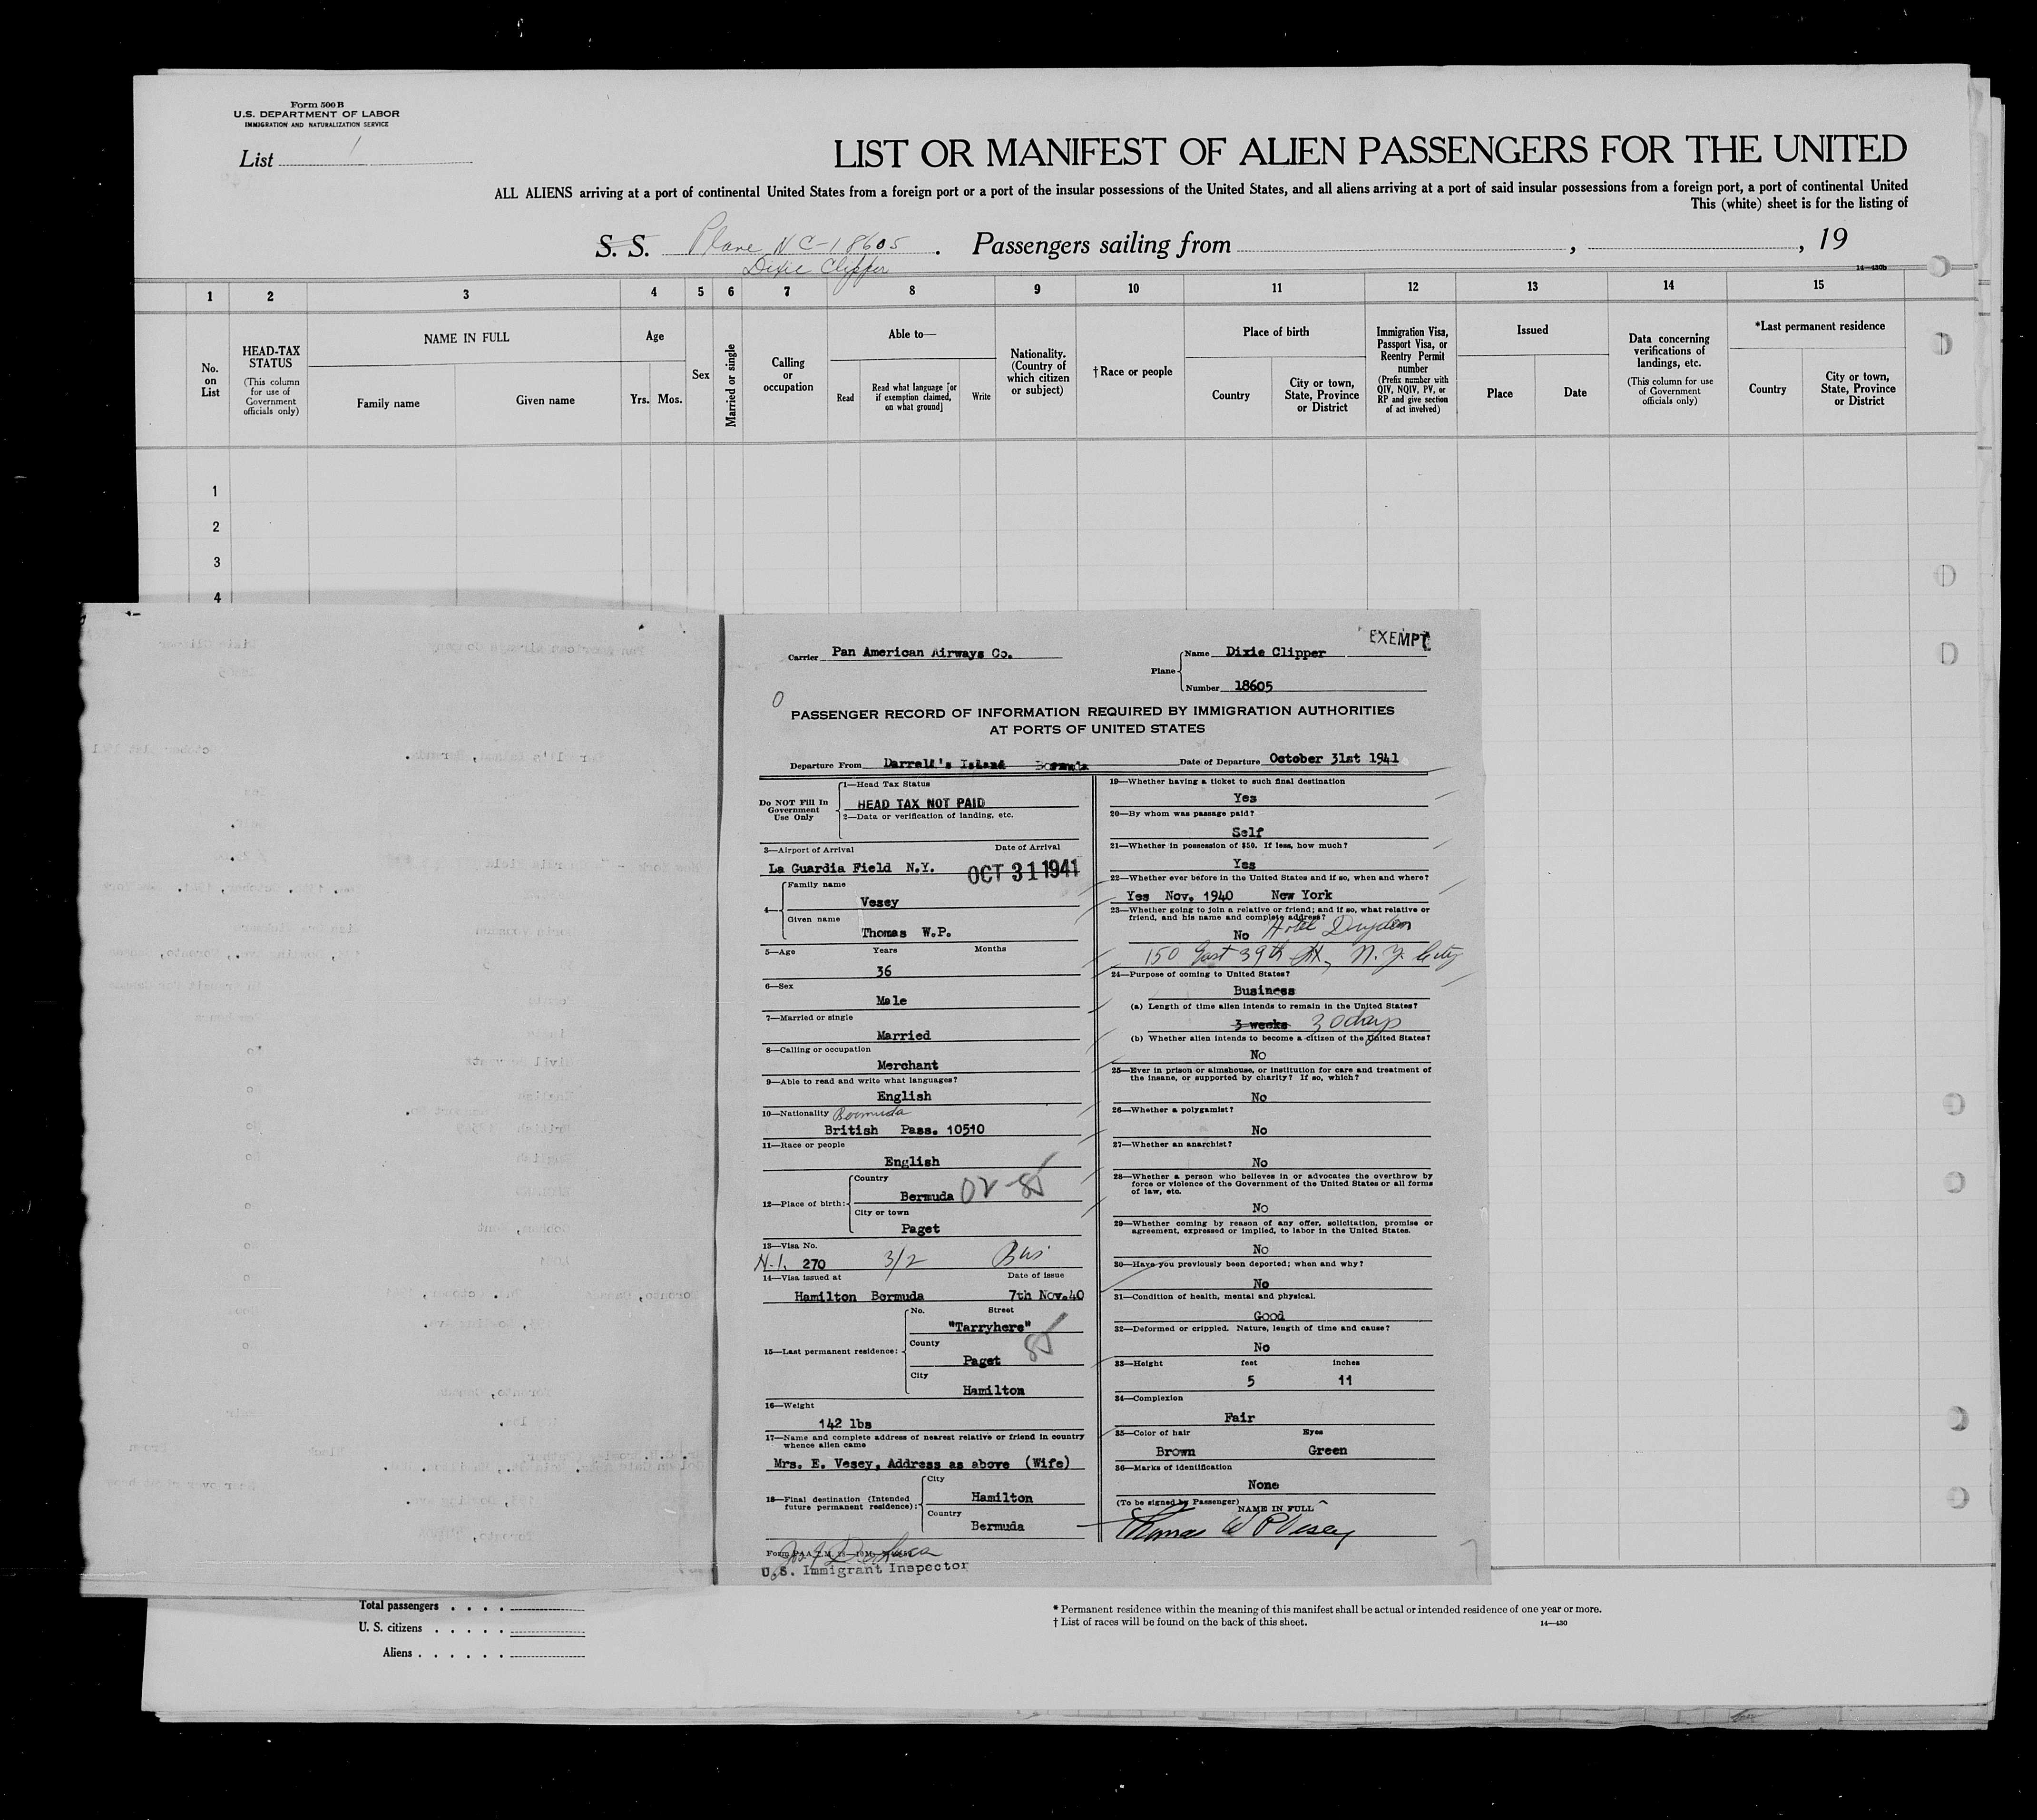 Form 500 B
U.S. DEPARTMENT OF LABOR
IMMIGRATION AND NATURALIZATION SERVICE
List 1
LIST OR MANIFEST OF ALIEN PASSENGERS FOR THE UNITED
ALL ALIENS arriving at a port of continental United States from a foreign port or a port of the insular possessions of the United States, and all aliens arriving at a port of said insular possessions from a foreign port, a port of continental United
This (white) sheet is for the listing of
S. S. Plane NC-18605 . Passengers sailing from , , 19
Dixie Clipper
14—430b
1 2 3 4 5 6 7 8 9 10 11 12 13 14 15
No. on List
HEAD-TAX STATUS
(This column for use of Government officials only)
NAME IN FULL
Family name
Given name
Age
Yrs. Mos.
Sex
Married or single
Calling or occupation
Able to—
Read
Read what language [or if exemption claimed, on what ground]
Write
Nationality. (Country of which citizen or subject)
† Race or people
Place of birth
Country
City or town, State, Province or District
Immigration Visa, Passport Visa, or Reentry Permit number
(Prefix number with QIV, NQIV, PV, or RP and give section of act involved)
Issued
Place
Date
Data concerning verifications of landings, etc.
(This column for use of Government officials only)
*Last permanent residence
Country
City or town, State, Province or District
1
2
3
4
EXEMPT
Carrier Pan American Airways Co.
Plane
Name Dixie Clipper
Number 18605
0
PASSENGER RECORD OF INFORMATION REQUIRED BY IMMIGRATION AUTHORITIES
AT PORTS OF UNITED STATES
Departure From Darrell's Island Bermuda Date of Departure October 31st 1941
Do NOT Fill In Government Use Only
1—Head Tax Status
HEAD TAX NOT PAID
2—Data or verification of landing, etc.
3—Airport of Arrival Date of Arrival
La Guardia Field N.Y. OCT 31 1941
4—
Family name
Vesey
Given name
Thomas W.P.
5—Age Years Months
36
6—Sex
Male
7—Married or single
Married
8—Calling or occupation
Merchant
9—Able to read and write what languages?
English
10—Nationality Bermuda
British Pass. 10510
11—Race or people
English
12—Place of birth:
Country
Bermuda 02-85
City or town
Paget
13—Visa No.
N-1. 270 3/2 Bus
14—Visa issued at Date of issue
Hamilton Bermuda 7th Nov.40
15—Last permanent residence:
No. Street
"Tarryhere"
85
County
Paget
City
Hamilton
16—Weight
142 lbs
17—Name and complete address of nearest relative or friend in country
whence alien came
Mrs. E. Vesey, Address as above (Wife)
18—Final destination (Intended
future permanent residence):
City
Hamilton
Country
Bermuda
U.S. Immigrant Inspector
19—Whether having a ticket to such final destination
Yes
20—By whom was passage paid?
Self
21—Whether in possession of $50. If less, how much?
Yes
22—Whether ever before in the United States and if so, when and where?
Yes Nov. 1940 New York
23—Whether going to join a relative or friend; and if so, what relative or
friend, and his name and complete address?
No Hotel Dryden
150 East 39th St, N.Y. City
24—Purpose of coming to United States?
Business
(a) Length of time alien intends to remain in the United States?
3 weeks 30 days
(b) Whether alien intends to become a citizen of the United States?
No
25—Ever in prison or almshouse, or institution for care and treatment of
the insane, or supported by charity? If so, which?
No
26—Whether a polygamist?
No
27—Whether an anarchist?
No
28—Whether a person who believes in or advocates the overthrow by
force or violence of the Government of the United States or all forms
of law, etc.
No
29—Whether coming by reason of any offer, solicitation, promise or
agreement, expressed or implied, to labor in the United States.
No
30—Have you previously been deported; when and why?
No
31—Condition of health, mental and physical.
Good
32—Deformed or crippled. Nature, length of time and cause?
No
33—Height feet inches
5 11
34—Complexion
Fair
35—Color of hair Eyes
Brown Green
36—Marks of identification
None
(To be signed by Passenger)
NAME IN FULL
Thomas W P Vesey
Total passengers . . . .
U. S. citizens . . . . .
Aliens . . . . . .
* Permanent residence within the meaning of this manifest shall be actual or intended residence of one year or more.
† List of races will be found on the back of this sheet.
14—430